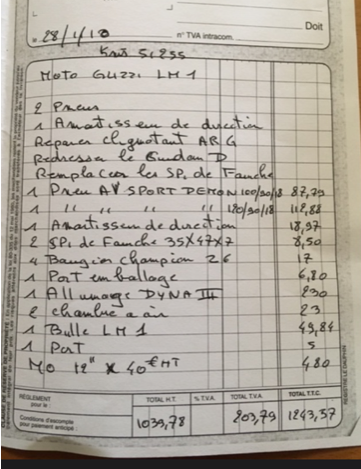 Doit
le 28/1/18 n° TVA intracom.
Kms 51255
Moto Guzzi LM1
2 Pneus
1 Amortisseur de direction
Reparer clignotant AR G
Redresser le Guidon D
Remplacer les SPi de Fourche
1 Pneu AV SPORT DEMON 100/90/18 87,79
1 " " " " 120/90/18 112,88
1 Amortisseur de direction 18,97
2 SPi de Fourche 35X47X7 8,50
4 Bougies champion 26 17
1 Port emballage 6,80
1 Allumage DYNA III 230
2 chambre a air 23
1 Bulle LM1 49,84
1 Port 5
MO 12H X 40€ HT 480
RÈGLEMENT TOTAL H.T. % T.V.A. TOTAL T.V.A. TOTAL T.T.C.
pour le :
Conditions d'escompte
pour paiement anticipé : 1039,78 203,79 1243,57